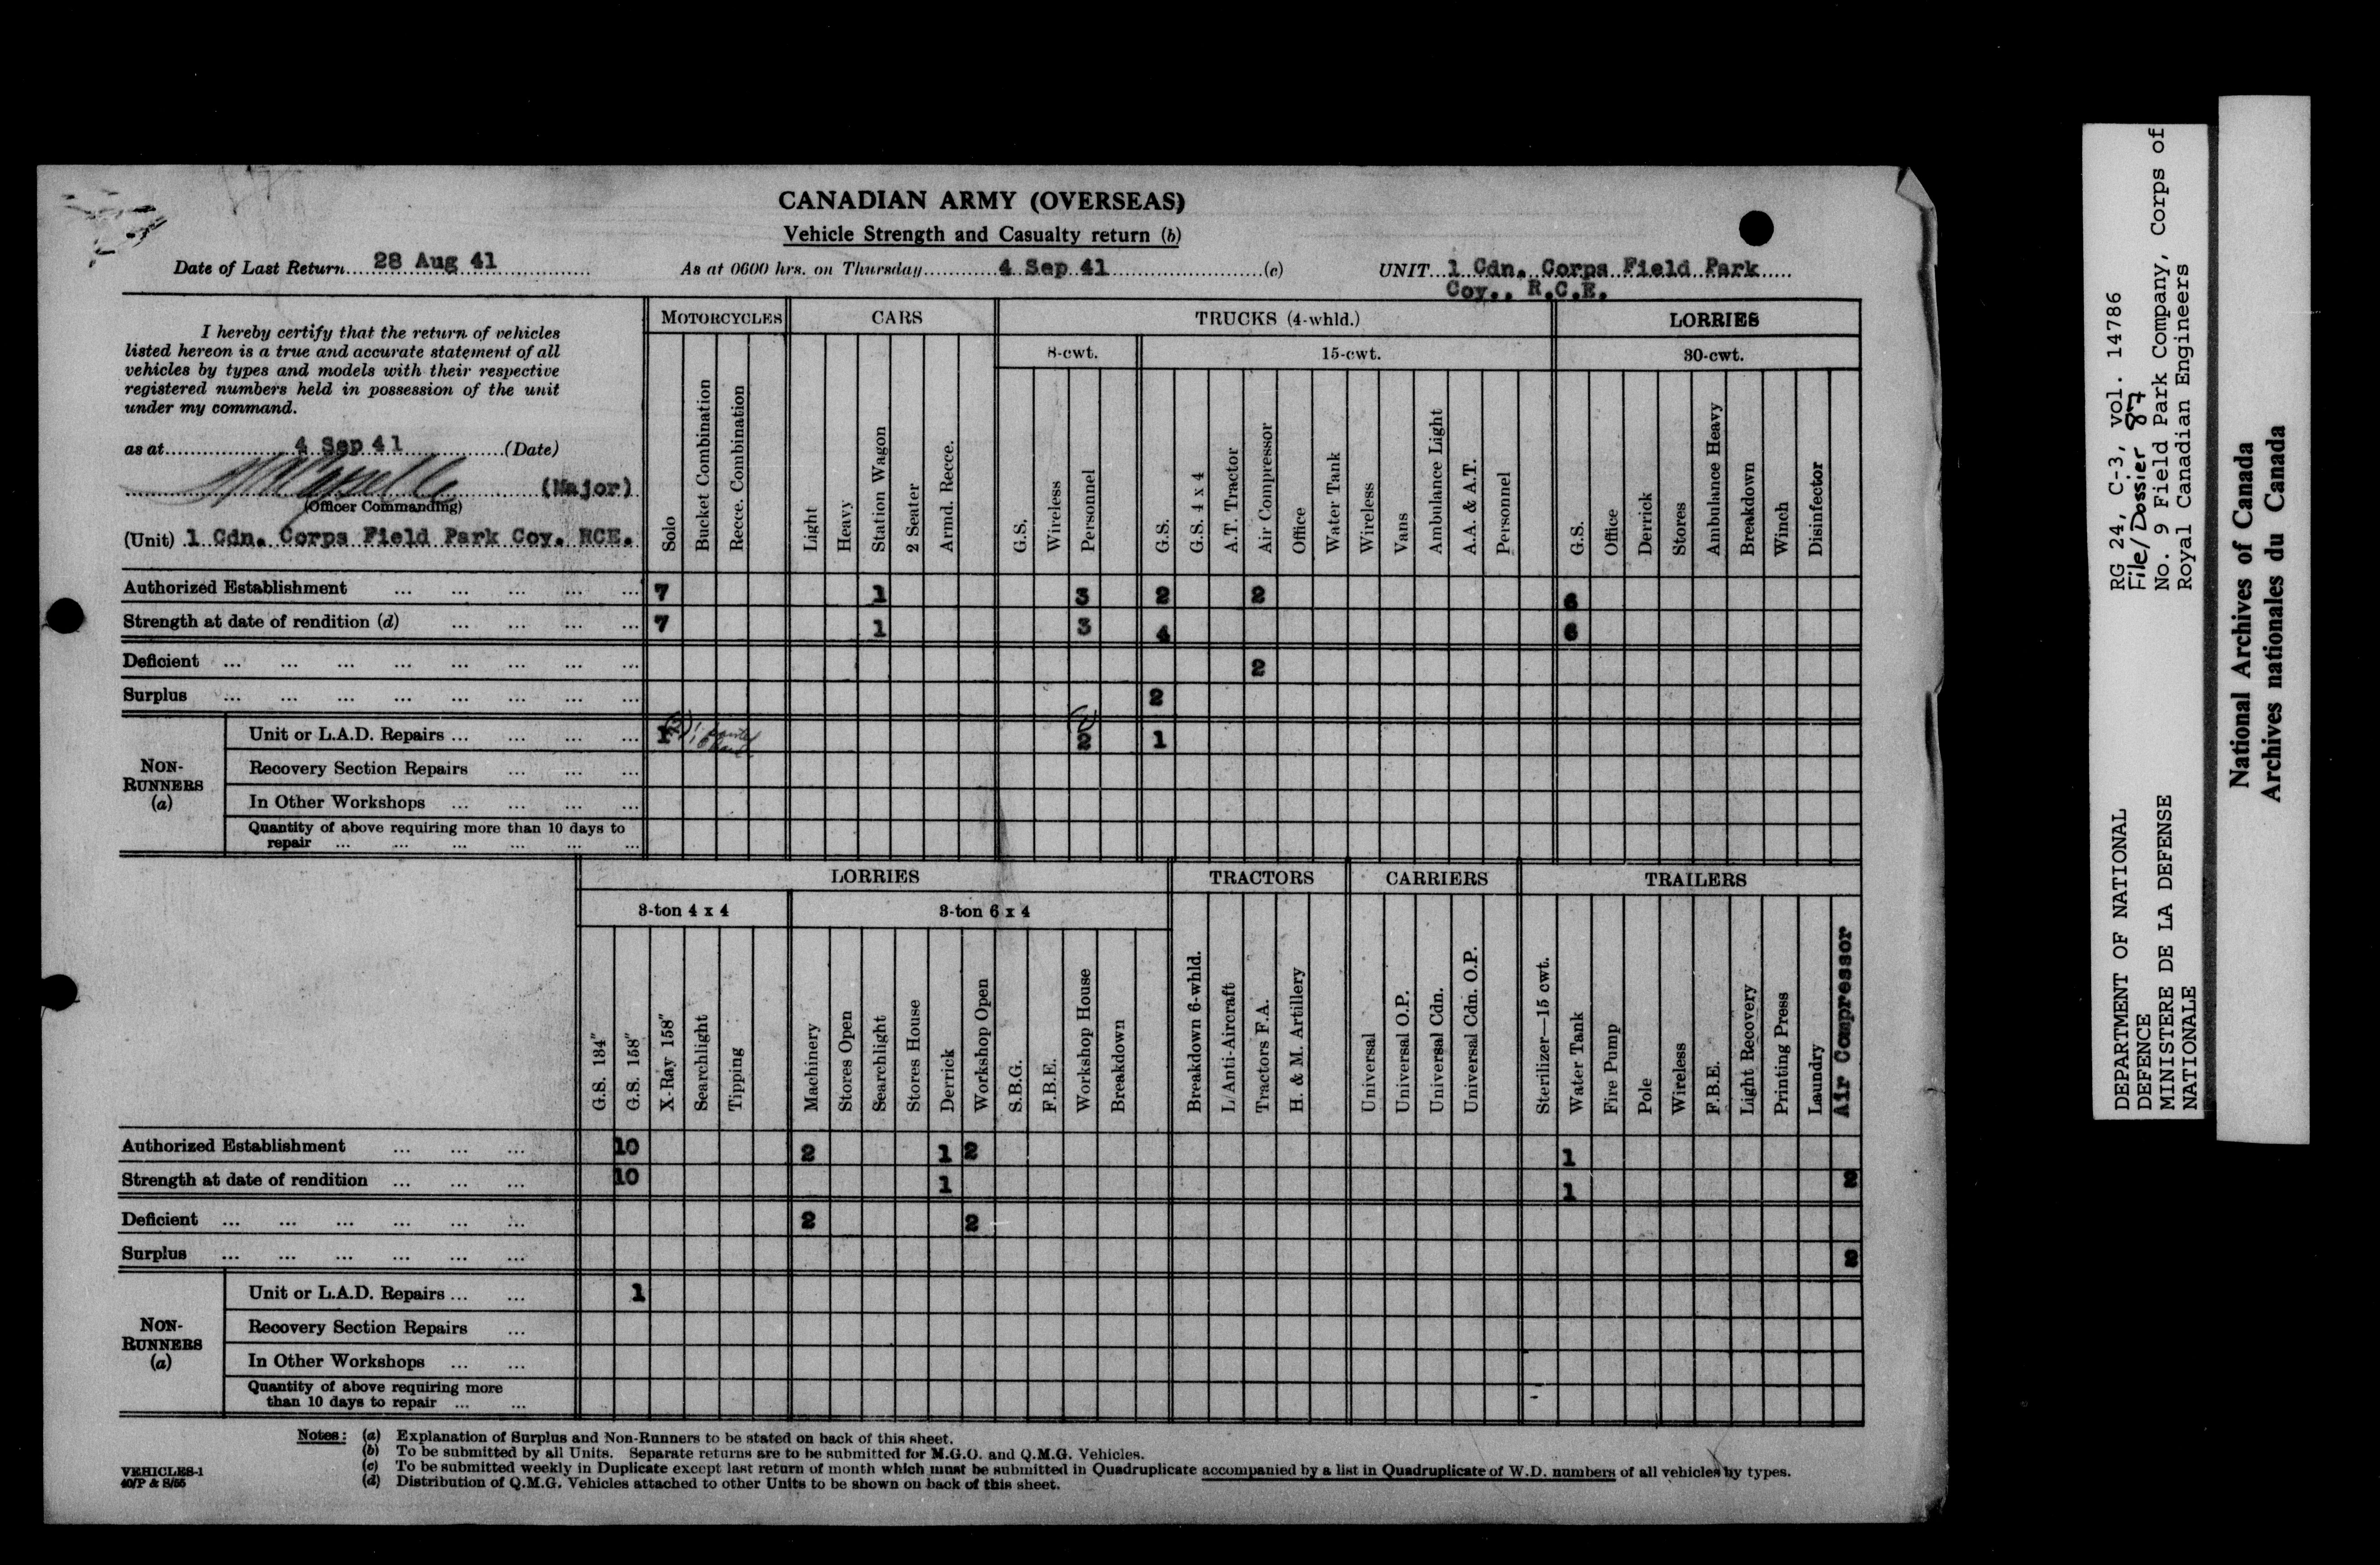 CANADIAN ARMY (OVERSEAS)
Vehicle Strength and Casualty return (b)
Date of Last Return....28 Aug 41............ As at 0600 hrs. on Thursday...........4 Sep 41......................(c) UNIT...1 Cdn. Corps Field Park.....
Coy., R.C.E.
I hereby certify that the return of vehicles
listed hereon is a true and accurate statement of all
vehicles by types and models with their respective
registered numbers held in possession of the unit
under my command.
as at....................4 Sep 41................(Date)
(Major)
(Officer Commanding)
(Unit) 1 Cdn. Corps Field Park Coy. RCE.
MOTORCYCLES CARS TRUCKS (4-whld.) LORRIES
8-cwt. 15-cwt. 30-cwt.
Solo
Bucket Combination
Recce. Combination
Light
Heavy
Station Wagon
2 Seater
Armd. Recce.
G.S.
Wireless
Personnel
G.S.
G.S. 4 x 4
A.T. Tractor
Air Compressor
Office
Water Tank
Wireless
Vans
Ambulance Light
A.A. & A.T.
Personnel
G.S.
Office
Derrick
Stores
Ambulance Heavy
Breakdown
Winch
Disinfector
Authorized Establishment ... ... ... ... ... 7 1 3 2 2 6
Strength at date of rendition (d) ... ... ... ... 7 1 3 4 6
Deficient ... ... ... ... ... ... ... ... 2
Surplus ... ... ... ... ... ... ... ... 2
NON-
RUNNERS
(a)
Unit or L.A.D. Repairs ... ... ... ... 1 2 1
Recovery Section Repairs ... ... ...
In Other Workshops ... ... ... ...
Quantity of above requiring more than 10 days to
repair ... ... ... ... ... ...
LORRIES TRACTORS CARRIERS TRAILERS
3-ton 4 x 4 3-ton 6 x 4
G.S. 134"
G.S. 158"
X-Ray 158"
Searchlight
Tipping
Machinery
Stores Open
Searchlight
Stores House
Derrick
Workshop Open
S.B.G.
F.B.E.
Workshop House
Breakdown
Breakdown 6-whld.
L/Anti-Aircraft
Tractors F.A.
H. & M. Artillery
Universal
Universal O.P.
Universal Cdn.
Universal Cdn. O.P.
Sterilizer—15 cwt.
Water Tank
Fire Pump
Pole
Wireless
F.B.E.
Light Recovery
Printing Press
Laundry
Air Compressor
Authorized Establishment ... ... ... 10 2 1 2 1
Strength at date of rendition ... ... ... 10 1 1 2
Deficient ... ... ... ... ... ... 2 2
Surplus ... ... ... ... ... ... 2
NON-
RUNNERS
(a)
Unit or L.A.D. Repairs ... ... 1
Recovery Section Repairs ...
In Other Workshops ... ...
Quantity of above requiring more
than 10 days to repair ... ...
Notes: (a) Explanation of Surplus and Non-Runners to be stated on back of this sheet.
(b) To be submitted by all Units. Separate returns are to be submitted for M.G.O. and Q.M.G. Vehicles.
(c) To be submitted weekly in Duplicate except last return of month which must be submitted in Quadruplicate accompanied by a list in Quadruplicate of W.D. numbers of all vehicles by types.
(d) Distribution of Q.M.G. Vehicles attached to other Units to be shown on back of this sheet.
VEHICLES-1
40/P & S/55
DEPARTMENT OF NATIONAL
DEFENCE
MINISTERE DE LA DEFENSE
NATIONALE
RG 24, C-3, vol. 14786
File/Dossier 87
No. 9 Field Park Company, Corps of
Royal Canadian Engineers
National Archives of Canada
Archives nationales du Canada